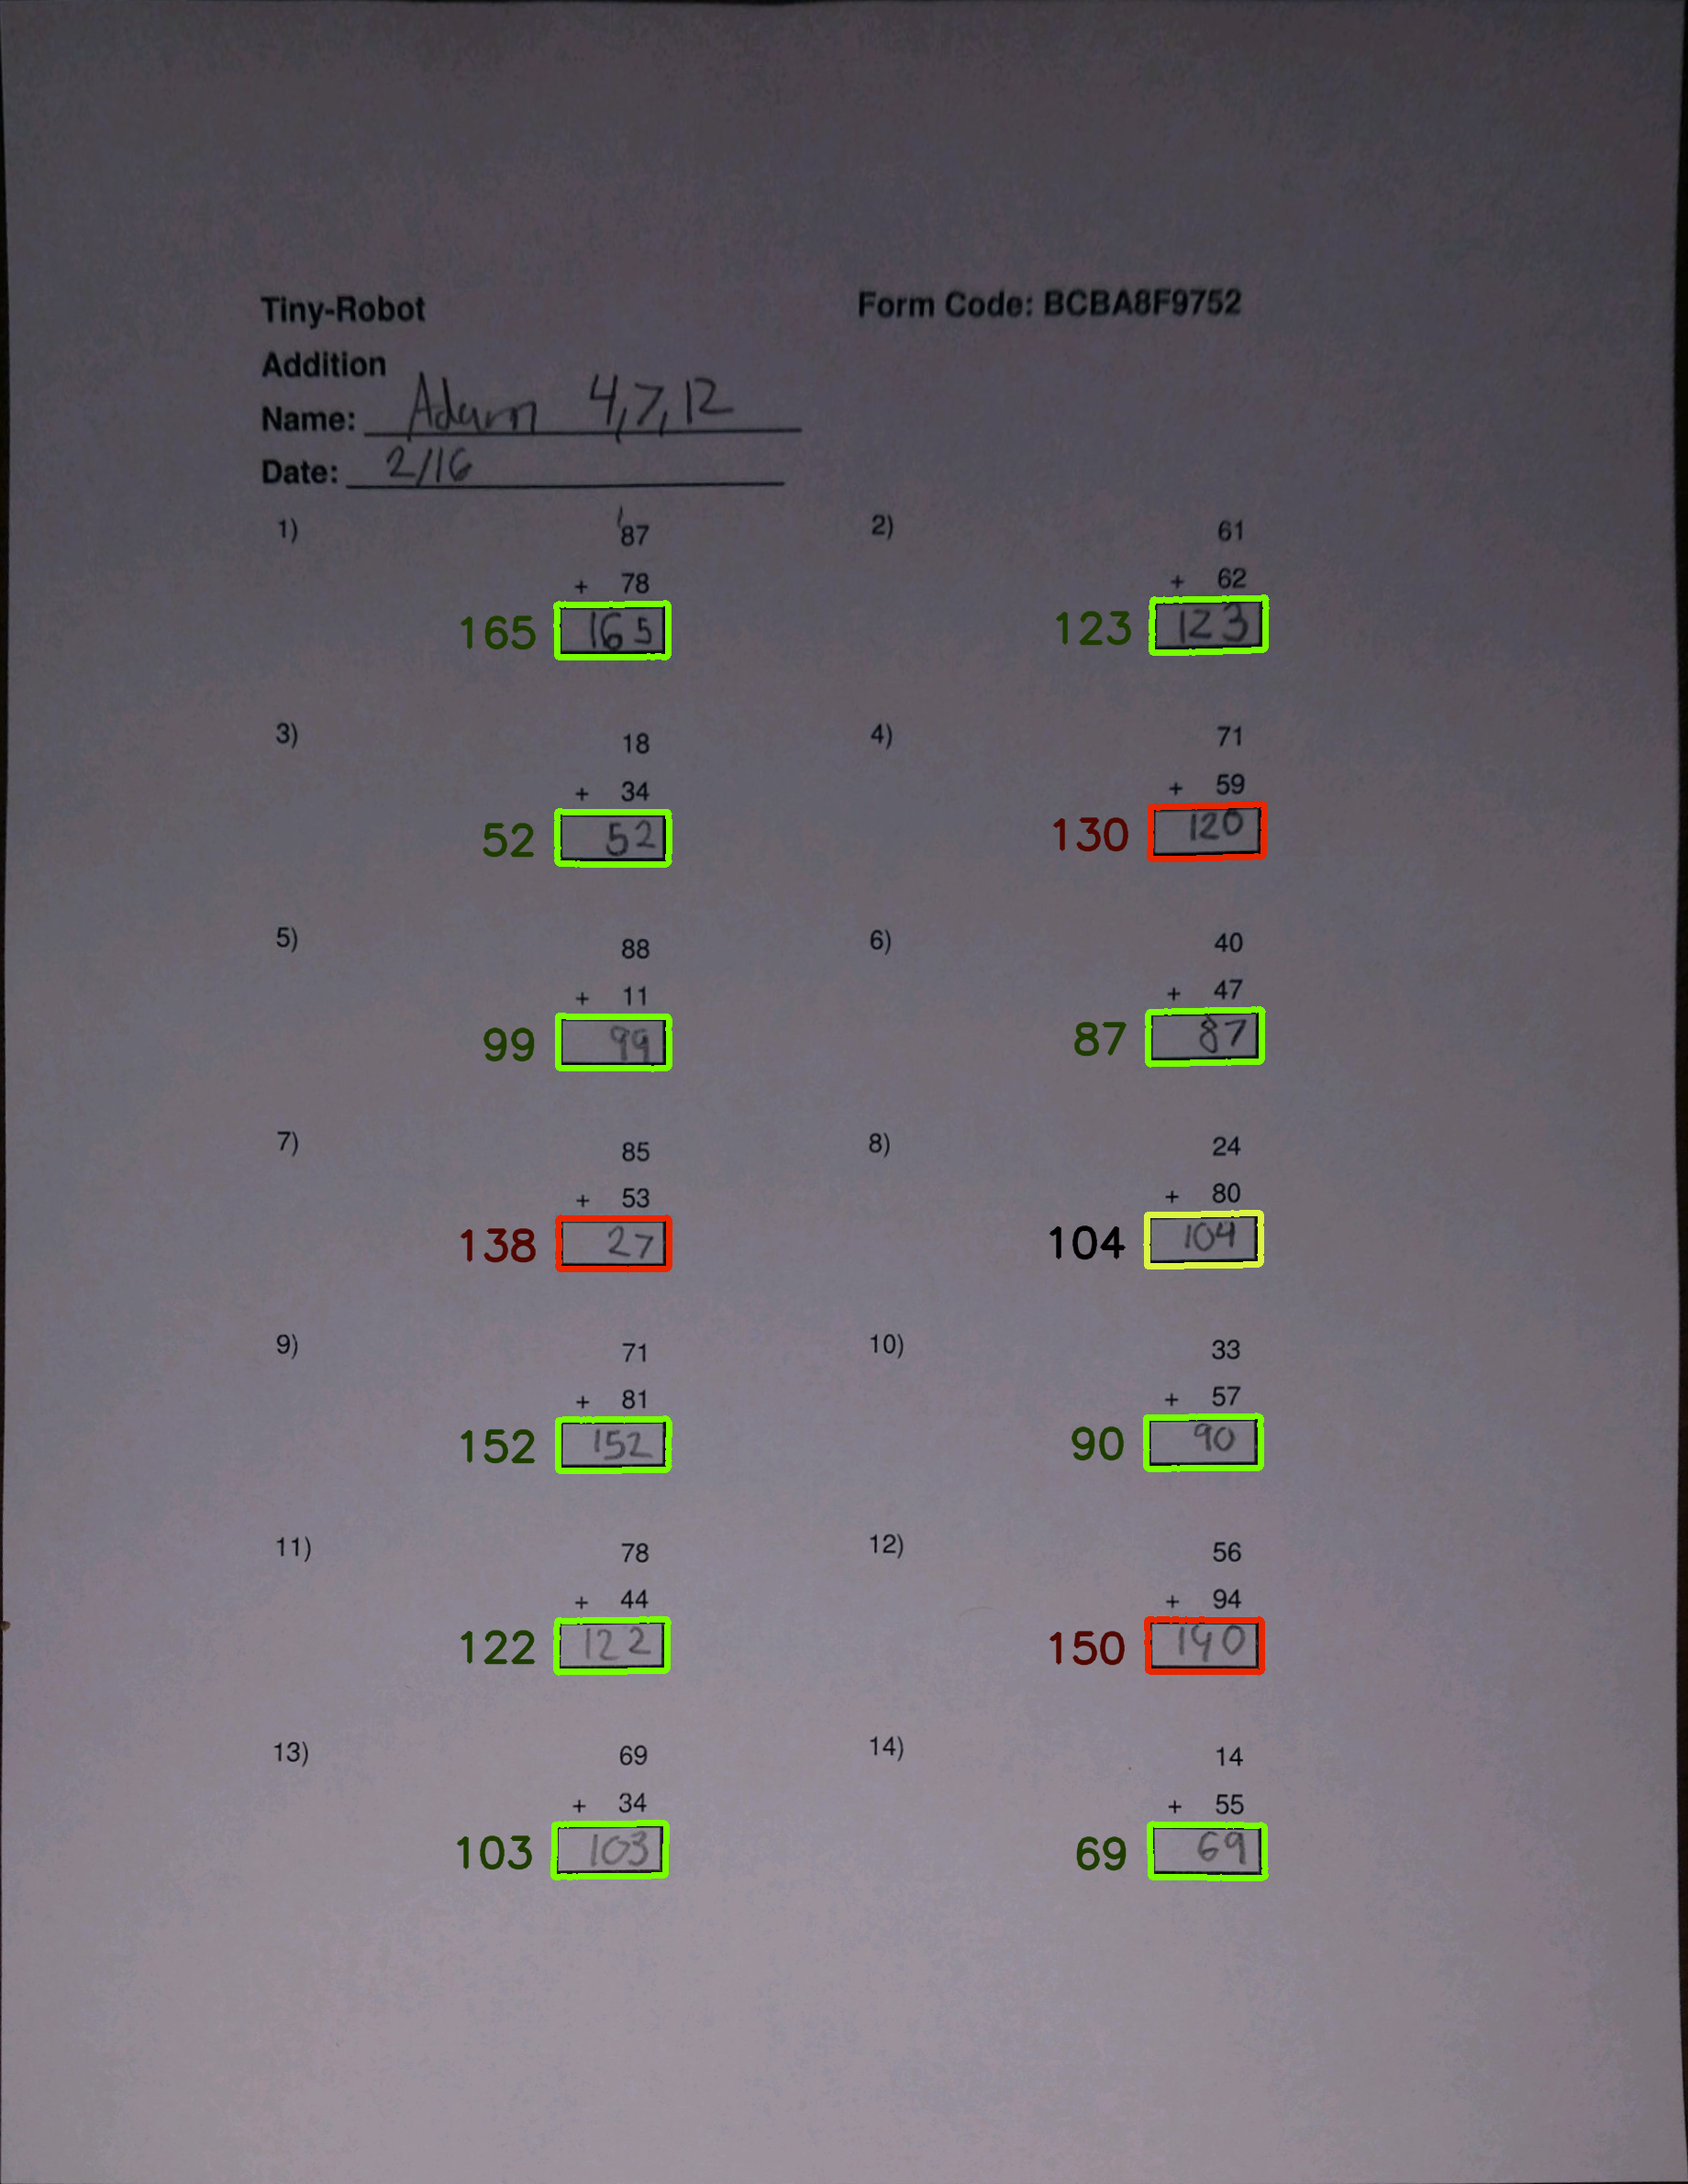 Tiny-Robot
Form Code: BCBA8F9752
Addition
Name: Adam 4,7,12
Date: 2/16
1)
1
87
+ 78
165 165
2)
61
+ 62
123 123
3)
18
+ 34
52 52
4)
71
+ 59
130 120
5)
88
+ 11
99 99
6)
40
+ 47
87 87
7)
85
+ 53
138 27
8)
24
+ 80
104 104
9)
71
+ 81
152 152
10)
33
+ 57
90 90
11)
78
+ 44
122 122
12)
56
+ 94
150 140
13)
69
+ 34
103 103
14)
14
+ 55
69 69